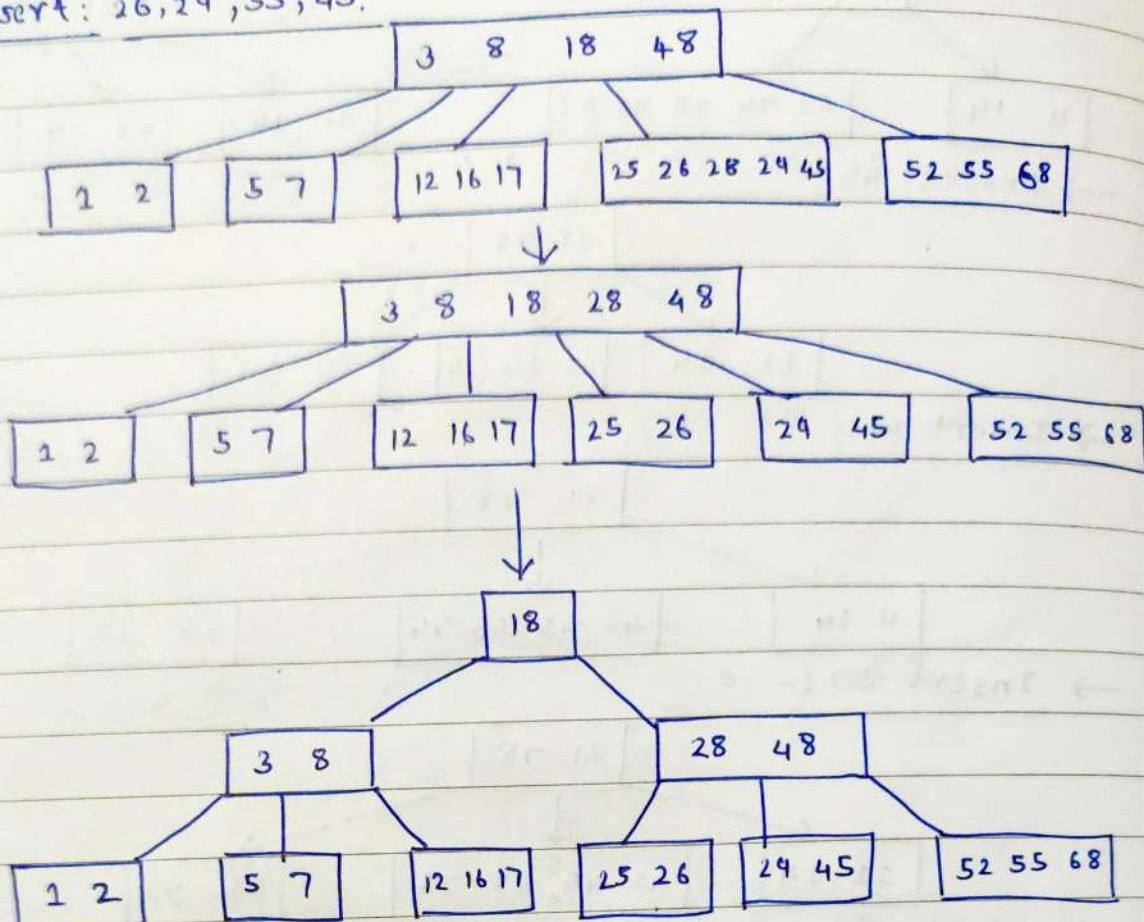 sert: 26, 29, 55, 45.
3 8 18 48
1 2 5 7 12 16 17 25 26 28 29 45 52 55 68
3 8 18 28 48
1 2 5 7 12 16 17 25 26 29 45 52 55 68
18
3 8 28 48
1 2 5 7 12 16 17 25 26 29 45 52 55 68